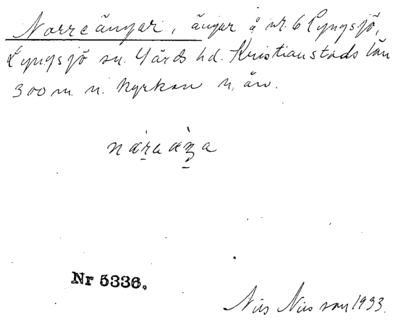 Norreängar, ängar å nr. 6 Lyngsjö,
Lyngsjö sn. Gärds hd. Kristianstads län
300 m. n. kyrkan n. ån.
Nr 5336.
Nils Nilsson 1933.